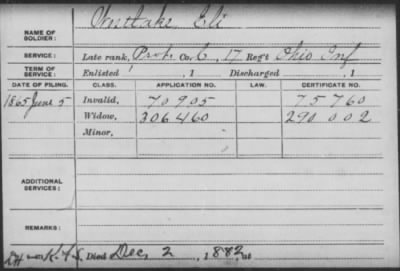 NAME OF SOLDIER: Westlake, Eli
SERVICE: Late rank, Priv. Co. C, 17 Reg't Ohio Inf
TERM OF SERVICE: Enlisted , 1 Discharged , 1
DATE OF FILING. CLASS. APPLICATION NO. LAW. CERTIFICATE NO.
1865 June 5 Invalid, 70905 75760
Widow, 306460 290002
Minor,
ADDITIONAL SERVICES:
REMARKS:
Died Dec, 2, 1882, at